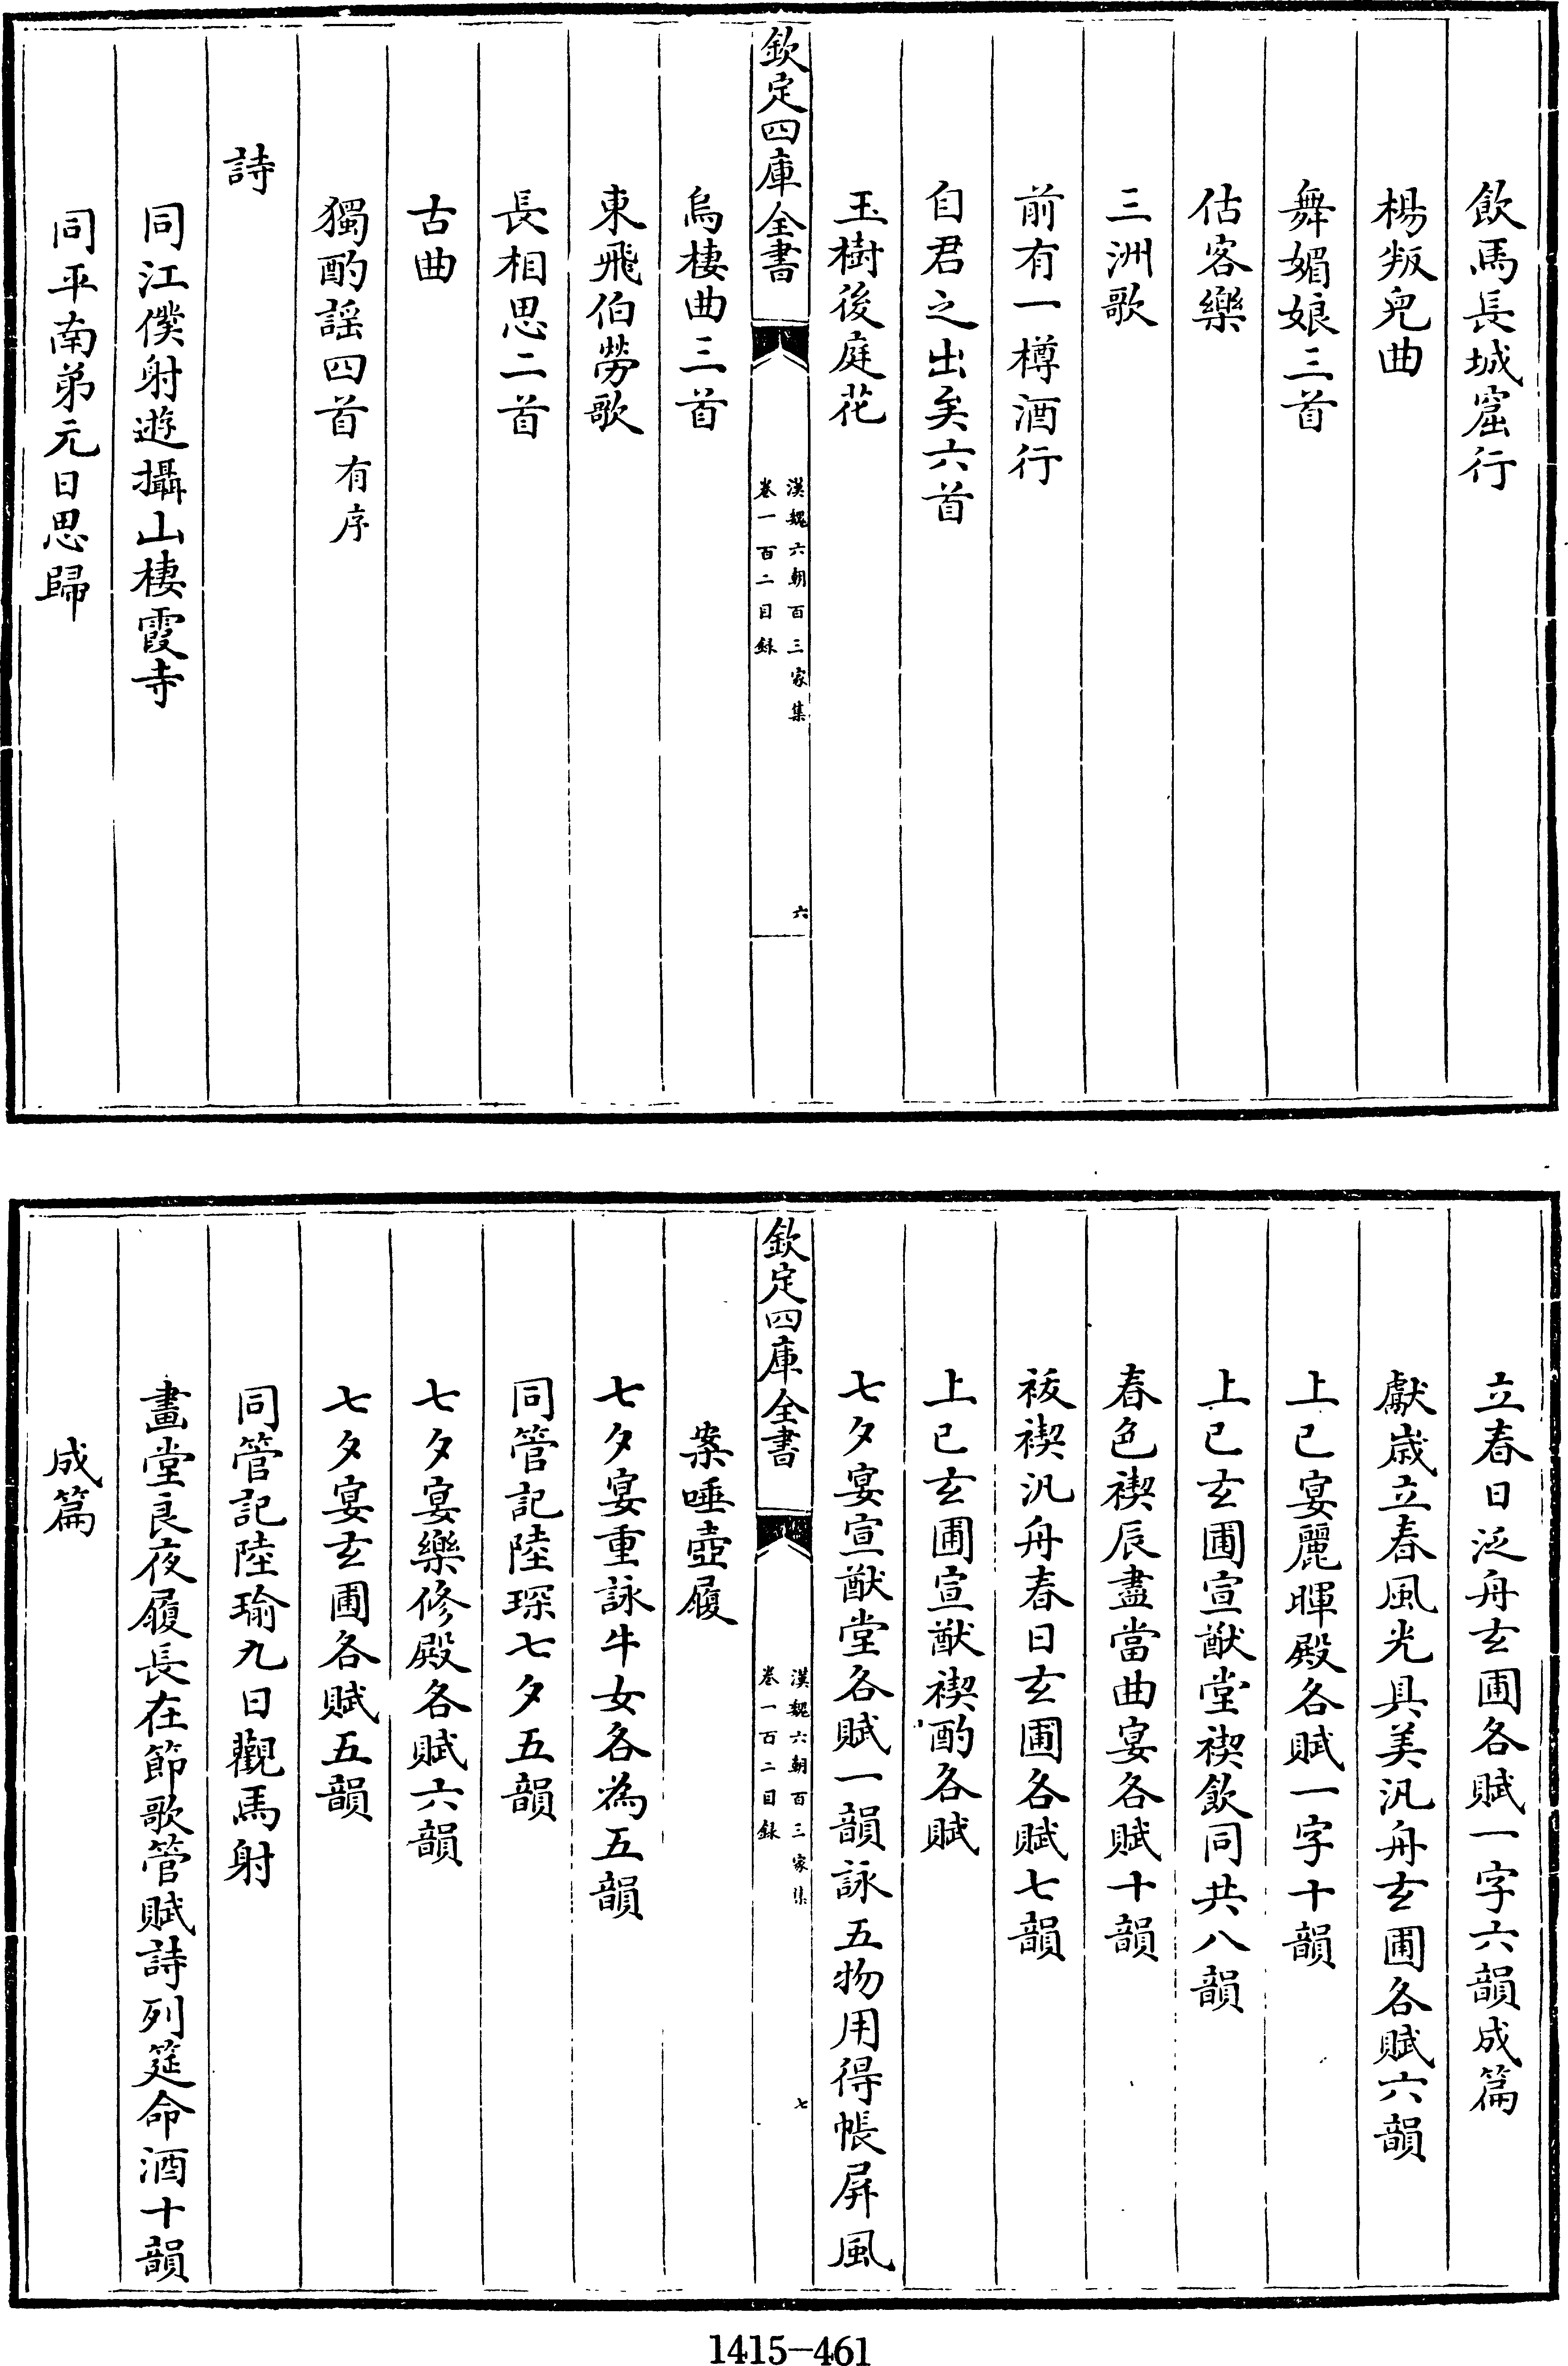 飲馬長城窟行
楊叛兒曲
舞媚娘三首
估客樂
三洲歌
前有一樽酒行
自君之出矣六首
玉樹後庭花
欽定四庫全書
漢魏六朝百三家集
卷一百二目録
六
烏棲曲三首
東飛伯勞歌
長相思二首
古曲
獨酌謡四首有序
詩
同江僕射遊攝山棲霞寺
同平南弟元日思歸
立春日泛舟玄圃各賦一字六韻成篇
獻嵗立春風光具美汎舟玄圃各賦六韻
上巳宴麗暉殿各賦一字十韻
上巳玄圃宣猷堂禊飲同共八韻
春色禊辰盡當曲宴各賦十韻
祓禊汎舟春日玄圃各賦七韻
上巳玄圃宣猷禊酌各賦
七夕宴宣猷堂各賦一韻詠五物用得帳屏風
欽定四庫全書
漢魏六朝百三家集
卷一百二目録
七
案唾壺履
七夕宴重詠牛女各為五韻
同管記陸琛七夕五韻
七夕宴樂修殿各賦六韻
七夕宴玄圃各賦五韻
同管記陸瑜九日觀馬射
畫堂良夜履長在節歌管賦詩列筵命酒十韻
成篇
1415-461